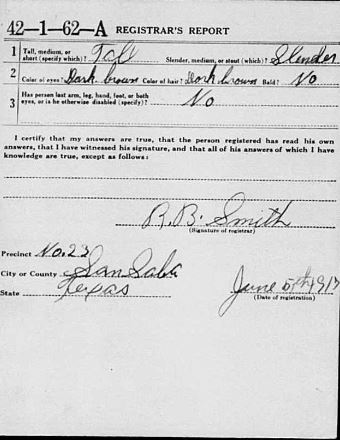 42-1-62-A REGISTRAR'S REPORT
1 Tall, medium, or short (specify which)? Tall Slender, medium, or stout (which)? Slender
2 Color of eyes? Dark brown Color of hair? Dark brown Bald? No
3 Has person lost arm, leg, hand, foot, or both
eyes, or is he otherwise disabled (specify)? No
I certify that my answers are true, that the person registered has read his own
answers, that I have witnessed his signature, and that all of his answers of which I have
knowledge are true, except as follows:
R.B. Smith
(Signature of registrar)
Precinct No. 23
City or County San Saba
State Texas
June 5th 1917
(Date of registration)